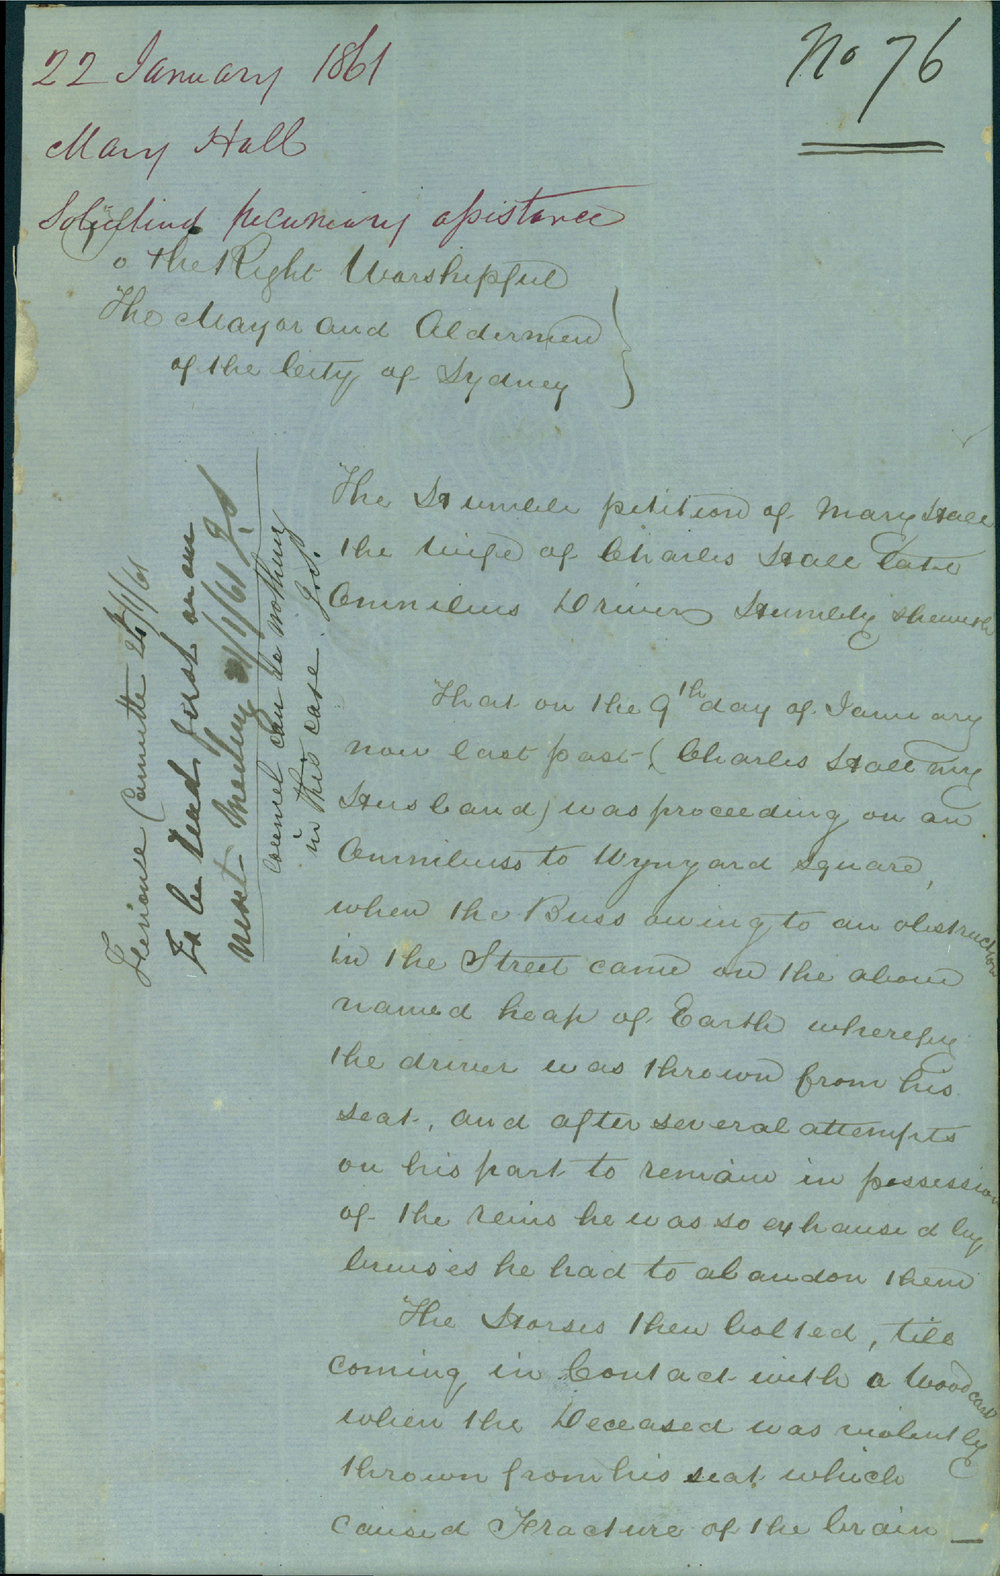 22 January 1861
No 76
Mary Hall
Soliciting pecuniary assistance
To the Right Worshipful
The Mayor and Aldermen
of the City of Sydney
The Humble petition of Mary Hall
the Wife of Charles Hall late
Omnibus Driver Humbly sheweth
That on the 9th day of January
now last past (Charles Hall my
Husband) was proceeding on an
Omnibuss to Wynyard Square,
when the Buss owing to an obstruction
in the Street came on the above
named heap of Earth whereby
the driver was thrown from his
seat, and after several attempts
on his part to remain in possession
of the reins he was so exhaused by
bruises he had to abandon them
The Horses then bolted, till
coming in Contact with a Wood cart
when the Deceased was violently
thrown from his seat which
caused Fracture of the brain
Finance Committee 25/1/61
To be read first on our
next meeting 21/1/61 J.S
Council can do nothing
in this case. J.S.